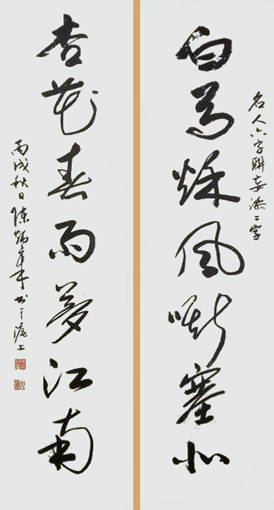 名人六字联妄添二字
白马秋风嘶塞北
杏花春雨梦江南
丙戌秋日陈炳昶书于沪上